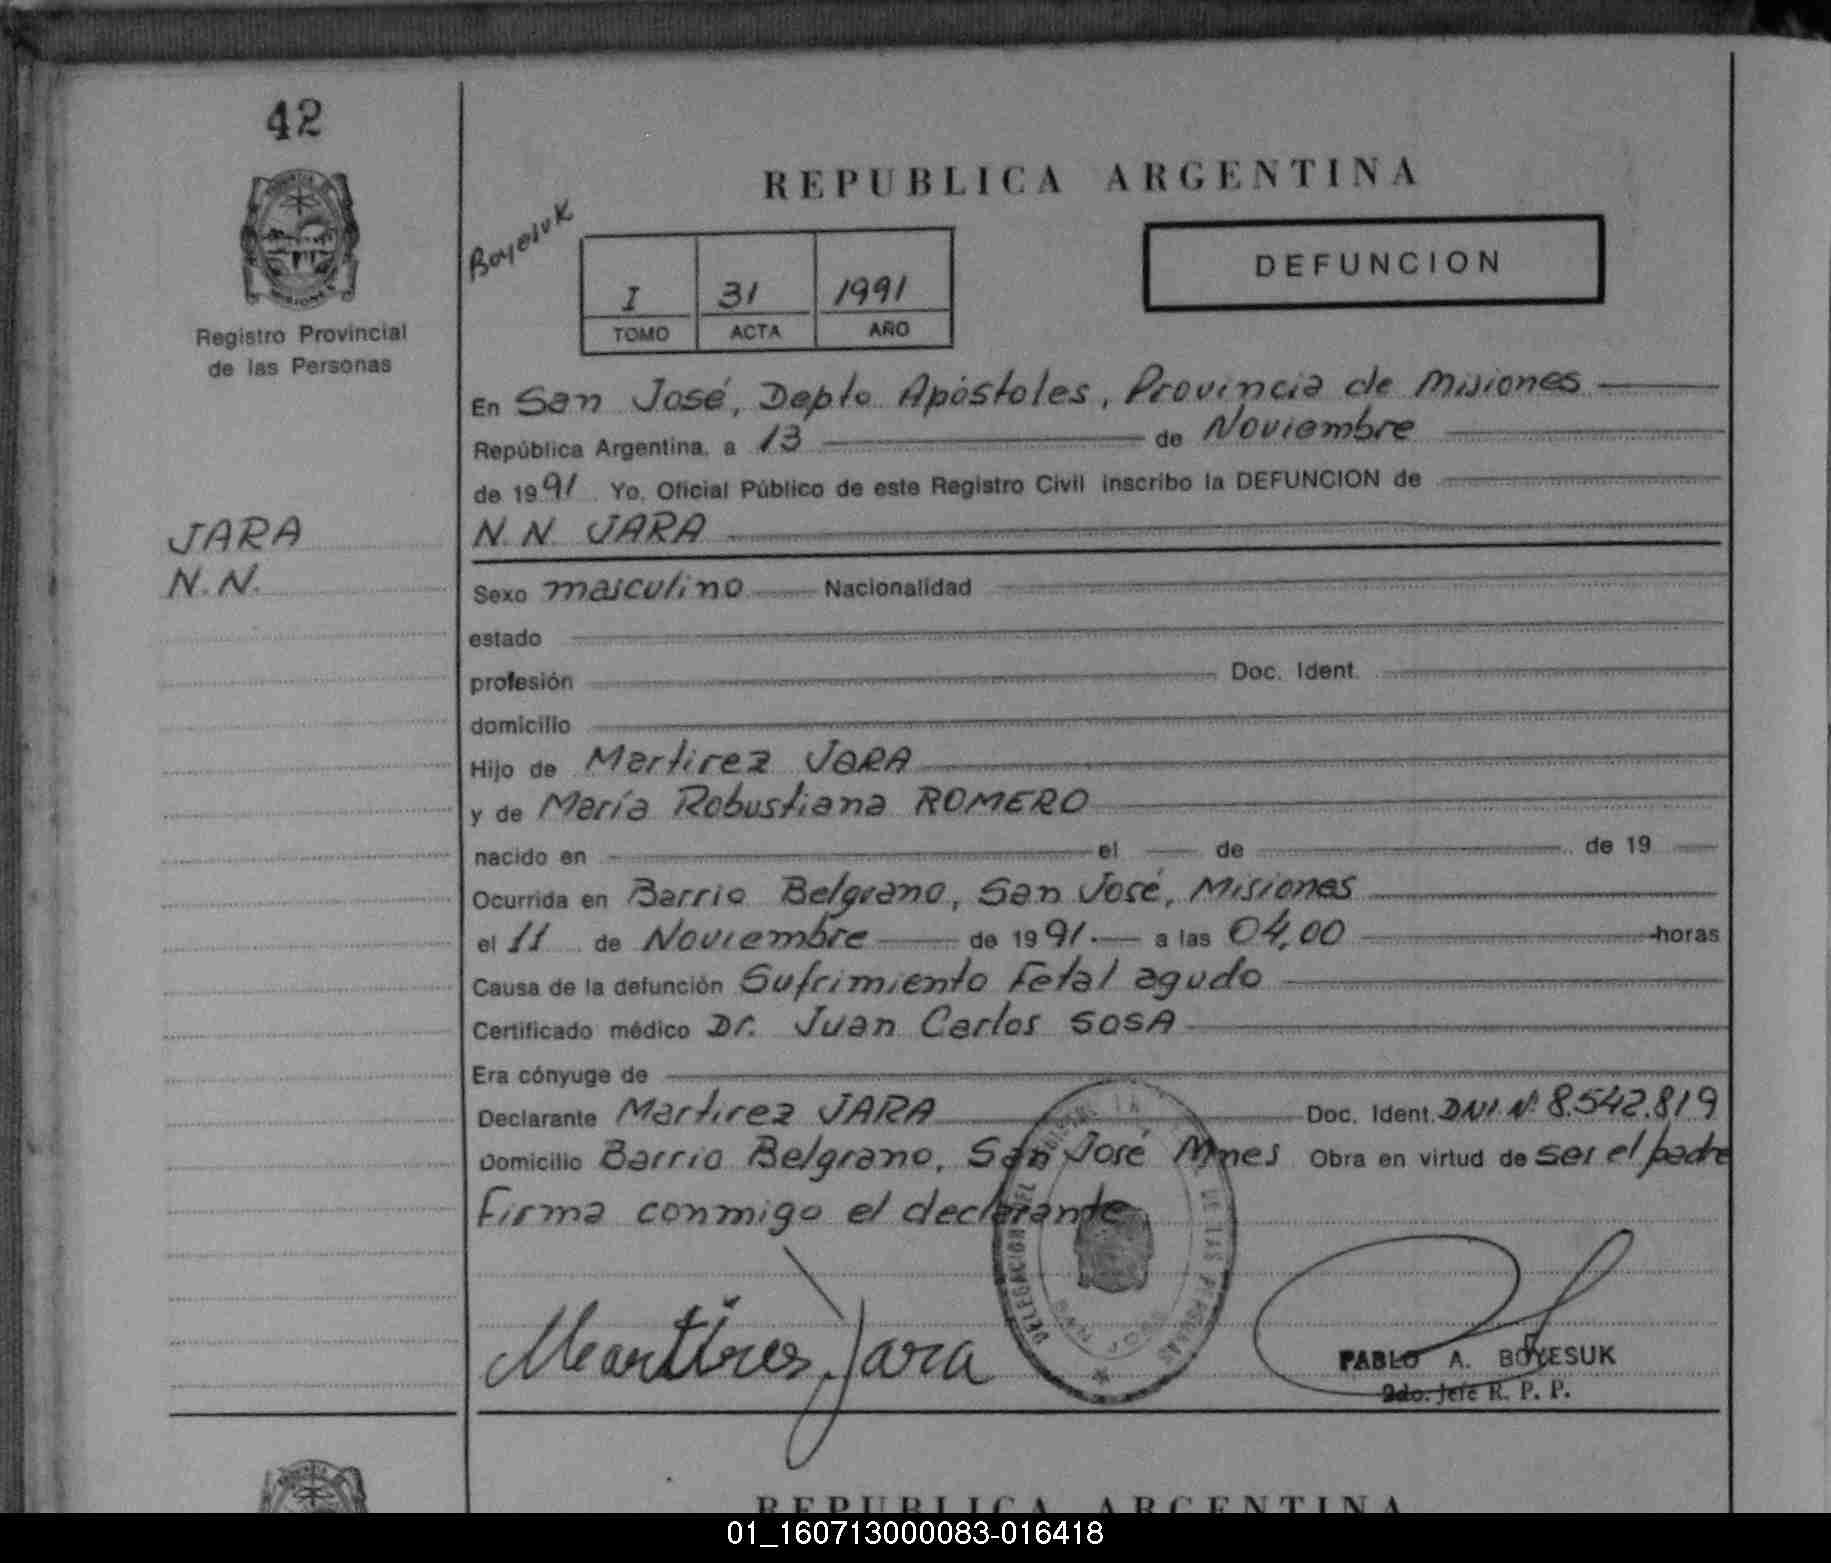 42
REPUBLICA ARGENTINA
Boyesuk
I 31 1991
TOMO ACTA AÑO
DEFUNCION
Registro Provincial
de las Personas
En San José, Depto Apóstoles, Provincia de Misiones
República Argentina, a 13 de Noviembre
de 1991. Yo, Oficial Público de este Registro Civil inscribo la DEFUNCION de
JARA
N.N.
N. N. JARA
Sexo masculino Nacionalidad
estado
profesión Doc. Ident.
domicilio
Hijo de Martirez JARA
y de María Robustiana ROMERO
nacido en el de de 19
Ocurrida en Barrio Belgrano, San José, Misiones
el 11 de Noviembre de 1991.- a las 04,00 horas
Causa de la defunción Sufrimiento Fetal agudo
Certificado médico Dr. Juan Carlos SOSA
Era cónyuge de
Declarante Martirez JARA Doc. Ident. DNI Nº 8.542.819
Domicilio Barrio Belgrano, San José Mnes Obra en virtud de ser el padre
Firma conmigo el declarante
DELEGACION DEL DE LAS PERSONAS
Martires Jara
PABLO A. BOYESUK
2do. Jefe R. P. P.
REPUBLICA ARGENTINA
01_160713000083-016418